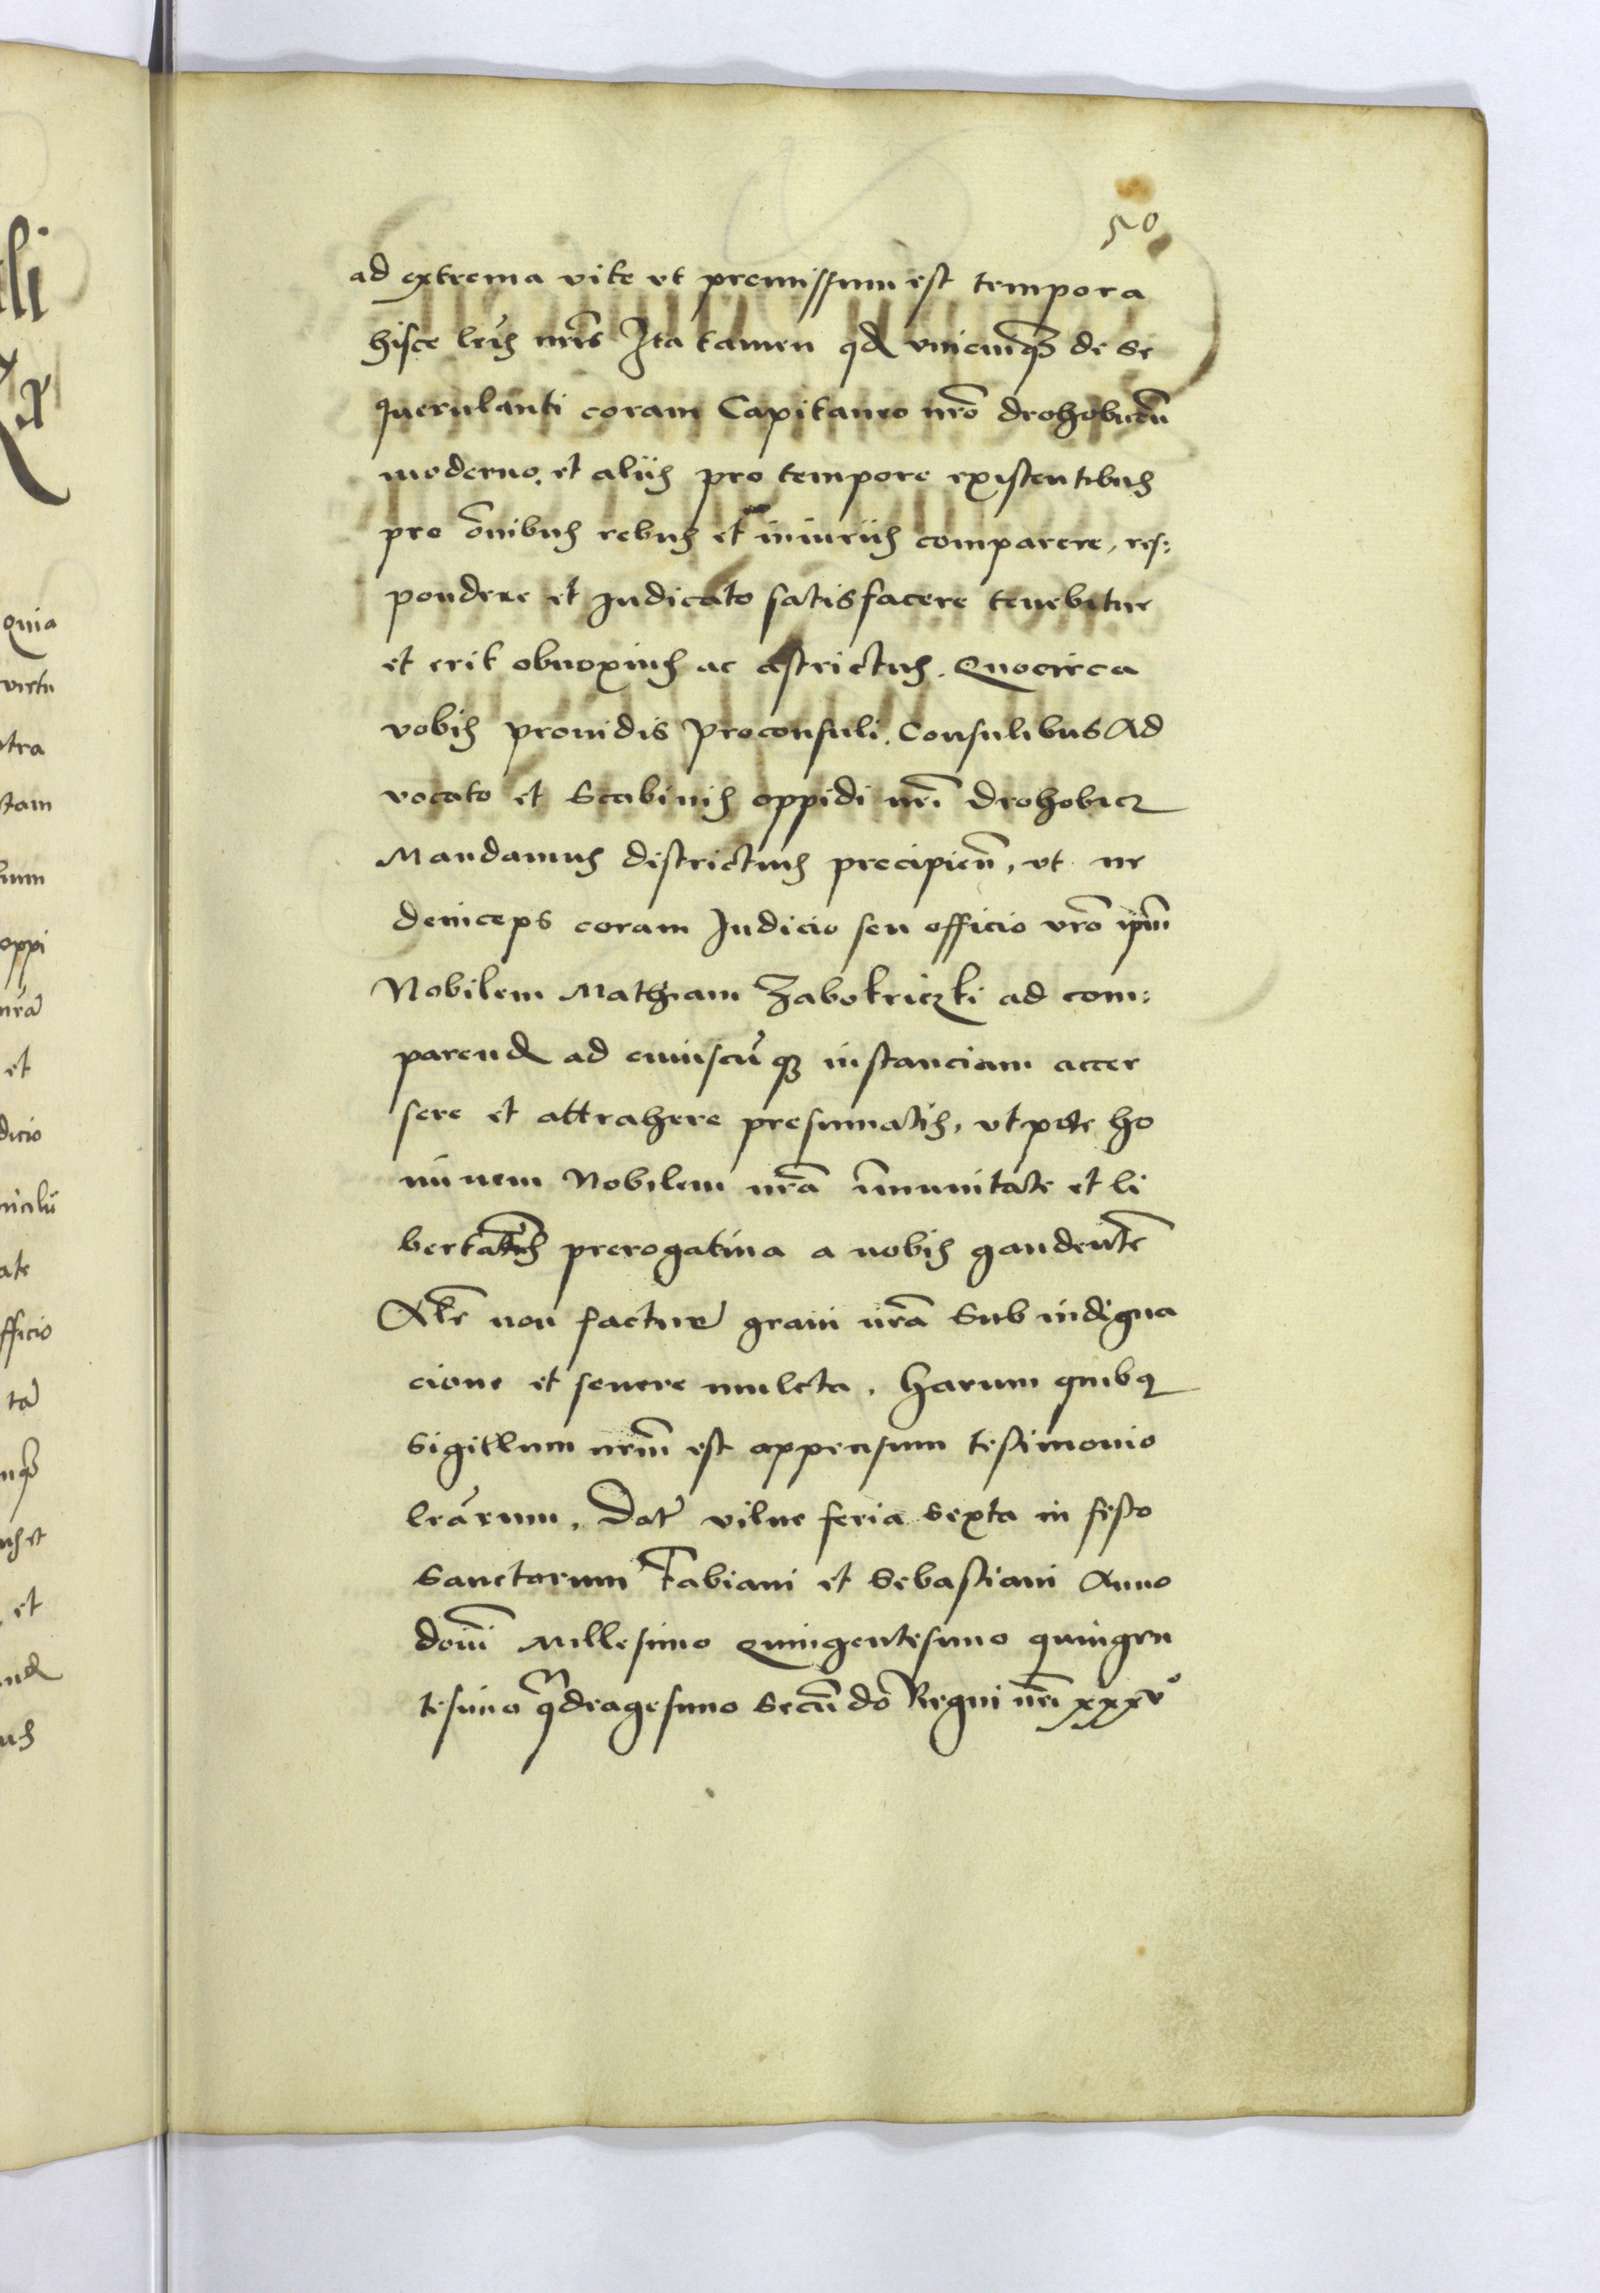 50
ad extrema vite vt premissum est tempora
hisce lr̃is nr̃is Ita tamen qd vnicuiq3 de se
querulanti coram Capitaneo nr̃o drohobiceñ
moderno, et aliis pro tempore existentibus
pro om̃ibus rebus et iniuriis comparere, res:
pondere et Iudicato satisfacere tenebitur
et erit obnoxius ac astrictus. Quocirca
vobis prouidis Proconsuli, Consulibus Ad
vocato et Scabinis oppidi nr̃i Drohobicz
Mandamus districtius precipieñ, vt ne
deinceps coram Iudicio seu officio vr̃o ip̃m
Nobilem Mathiam Zabokriczki ad com:
parend ad cuiuscũq3 instanciam accer
sere et attrahere presumatis, vtpote ho
minem Nobilem nr̃a im̃unitate et li
bertatis prerogatiua a nobis gaudentẽ
Alr̃ non factur graui nr̃a sub indigna
cione et seuere mulcta. Harum quibq
Sigillum nr̃m est appensum testimonio
lr̃arum. Dat vilne feria sexta in festo
Sanctorum Fabiani et Sebastiani Anno
domĩ Millesimo Quingentesimo quingen
tesimo qdragesimo secũdo Regni nr̃i xxxvº
Quia
tra
oppi
et
dicio
ate
fficio
et